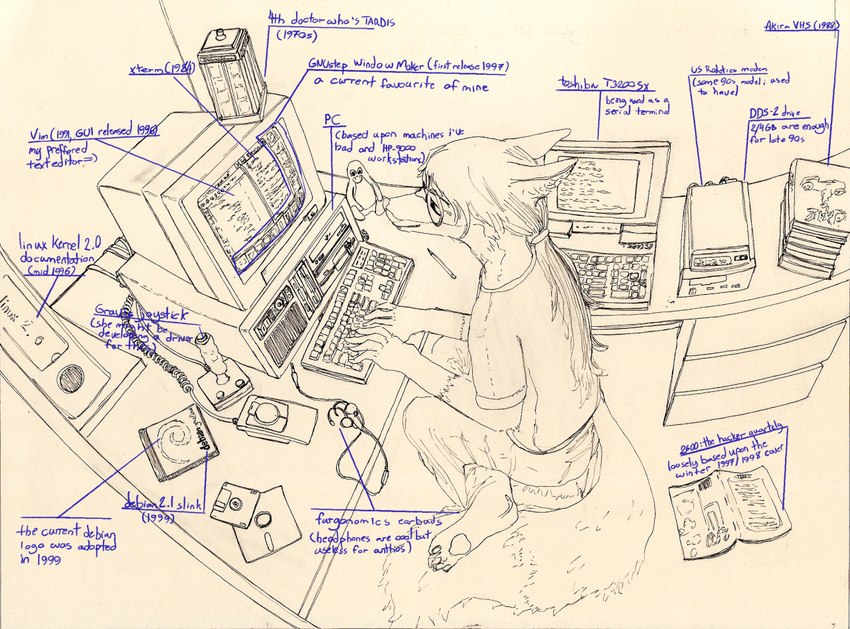 4th doctor who's TARDIS
(1970s)
Akira VHS (1988)
xterm (1984)
GNUstep Window Maker (first release 1997)
a current favourite of mine
US Robotics modem
(some 90s model i used
to have)
toshiba T3200SX
being used as a
serial terminal
DDS-2 drive
2/4GB are enough
for late 90s
PC
(based upon machines i've
had and HP-9000
workstations)
Vim (1991, GUI released 1996)
my preffered
text editor =)
linux kernel 2.0
documentation
(mid 1996)
linux 2.0
Gravis joystick
(she might be
developing a driver
for this)
2600: the hacker quarterly
loosely based upon the
winter 1997/1998 cover
debian
debian 2.1 slink
(1999)
the current debian
logo was adopted
in 1999
furgonomics earbuds
(headphones are cool but
useless for anthros)